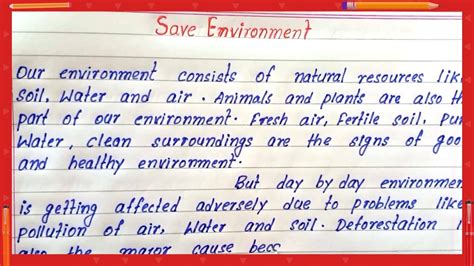 Save Environment
Our environment consists of natural resources lik
soil, water and air. Animals and plants are also th
part of our environment. Fresh air, Fertile soil, Pur
Water, clean surroundings are the signs of goo
and healthy environment.
But day by day environmen
is getting affected adversely due to problems like
pollution of air, water and soil. Deforestation i
also the major cause becc